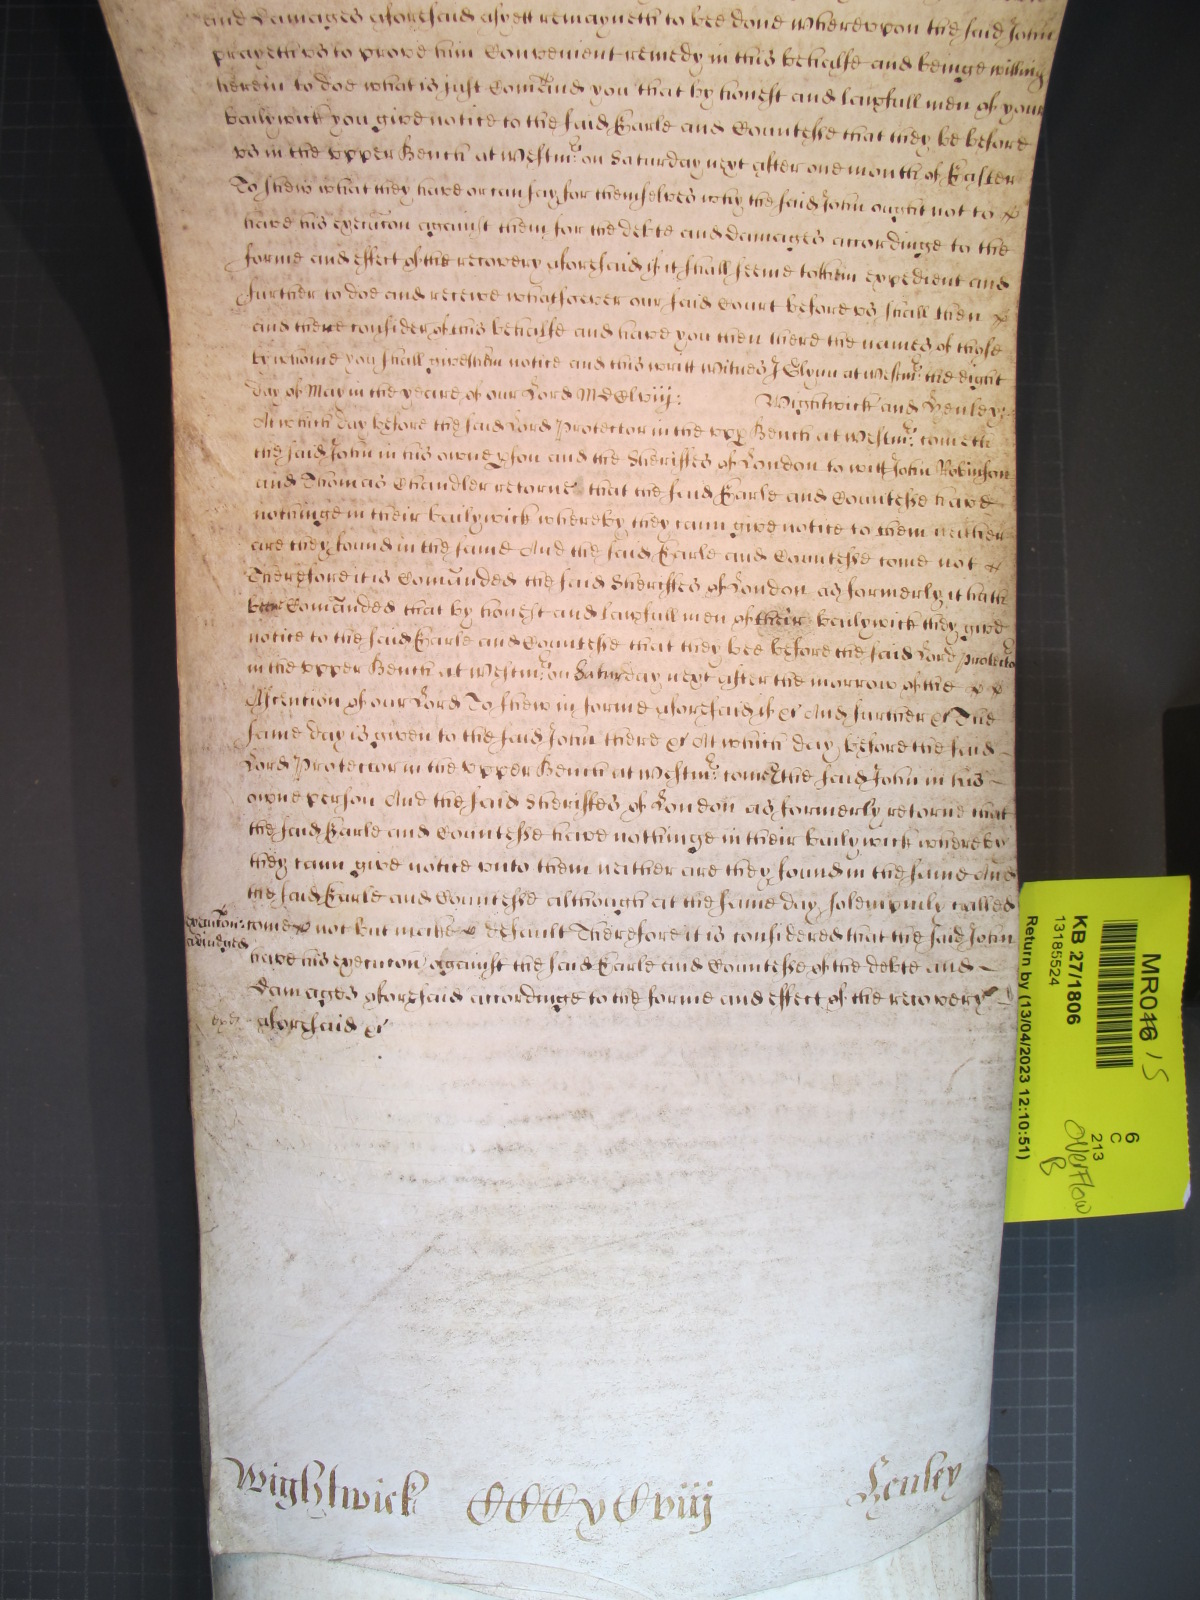 and damages aforesaid asyett remayneth to bee done whereupon the said John
prayeth us to prove him Convenient remedy in this behalfe and beinge willing
herein to doe what is just Comãnd you that by honest and lawfull men of your
bailywick you give notice to the said Earle and Countesse that they be before
us in the upper Bench at Westmr on Saturday next after one month of Easter
To shew what they have or can say for themselves why the said John ought not to
have his execucon against them for the debte and damages accordinge to the
forme and effect of the recovery aforesaid if it shall seeme to them expedient and
further to doe and receive whatsoever our said Court before us shall then
and there consider of in this behalfe and have you then there the names of those
by whome you shall give them notice and this writt Witnes J Glynn at Westmr the eight
day of May in the yeare of our Lord MDCLviij: Wightwick and Henley
At which day before the said Lord Protector in the upp Bench at Westmr: cometh
the said John in his owne pson and the Sheriffes of London to witt John Robinson
and Thomas Chandler retorne that the said Earle and Countesse have
nothinge in their bailywick whereby they cann give notice to them neither
are they found in the same And the said Earle and Countesse come not
Therefore it is Comãnded the said Sheriffes of London as formerly it hath
beene Comãnded that by honest and lawfull men of their bailywick they give
notice to the said Earle and Countesse that they bee before the said Lord Protector
in the upper Bench at Westmr: on Saturday next after the morrow of the
Ascention of our Lord To shew in forme aforesaid if &c And further &c The
same day is given to the said John there &c At which day before the said
Lord Protector in the upper Bench at Westmr: comes the said John in his
owne person And the said Sheriffes of London as formerly retorne that
the said Earle and Countesse have nothinge in their bailywick whereby
they cann give notice unto them neither are they found in the same And
the said Earle and Countesse although at the same day solempnly called
execucon: come not but make default Therefore it is considered that the said John
adjudged have his execucon against the said Earle and Countesse of the debte and
damages aforesaid accordinge to the forme and effect of the recovery
aforesaid &c
Wightwick CCCxCviij Henley
MR016 15
KB 27/1806
13185524
Return by (13/04/2023 12:10:51)
6
C
213
overflow
B